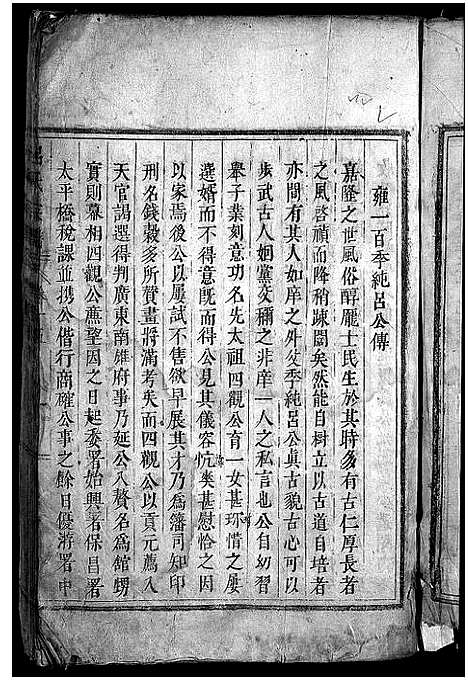 雍一百季純呂公傳
嘉隆之世風俗醇龐士民生於其時多有古仁厚長者
之風啓禎而降稍疎闊矣然能自樹立以古道自培者
亦間有其人如庠之外父季純呂公眞古貌古心可以
步武古人姻黨交稱之非庠一人之私言也公自幼習
舉子業刻意功名先太祖四觀公育一女甚珎惜之屢
選婿而不得意旣而得公見其儀容忼爽甚慰恰之因
以家焉後公以屢試不售欲早展其才乃爲藩司知印
刑名錢穀多所贊畫將滿考矣而四觀公以貢元薦入
天官謁選得判廣東南雄府事乃延公入贅名爲舘甥
實則幕相四觀公廉望因之日起委署始興署保昌署
太平橋稅課並携公偕行商確公事之餘日優游署中